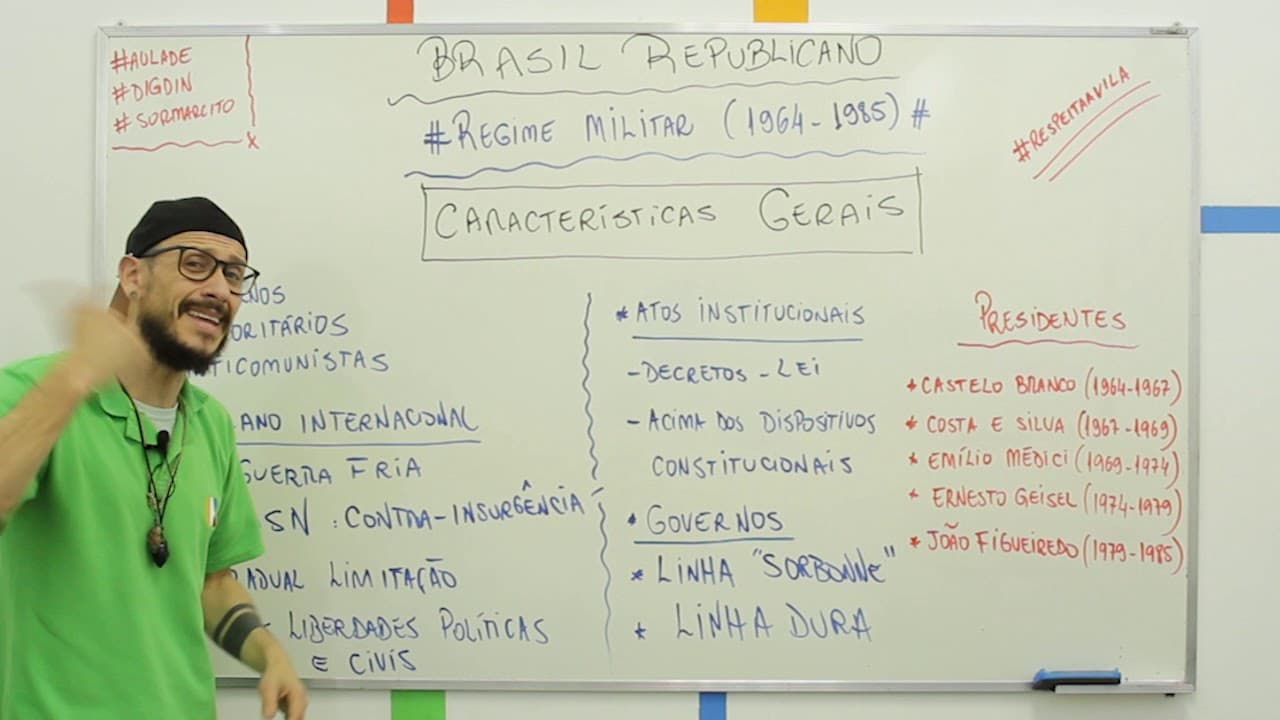 #AULADE
#DIGDIN
#SORMARCITO
BRASIL REPUBLICANO
#REGIME MILITAR (1964-1985)#
#RESPEITAAVILA
CARACTERÍSTICAS GERAIS
LIMITAÇÃO
GUERRA FRIA
: CONTRA-INSURGÊNCIA
INTERNACIONAL
LIBERDADES POLÍTICAS
E CIVIS
* ATOS INSTITUCIONAIS
- DECRETOS - LEI
- ACIMA DOS DISPOSITIVOS
CONSTITUCIONAIS
* GOVERNOS
* LINHA "SORBONNE"
* LINHA DURA
PRESIDENTES
* CASTELO BRANCO (1964-1967)
* COSTA E SILVA (1967-1969)
* EMÍLIO MÉDICI (1969-1974)
* ERNESTO GEISEL (1974-1979)
* JOÃO FIGUEIREDO (1979-1985)